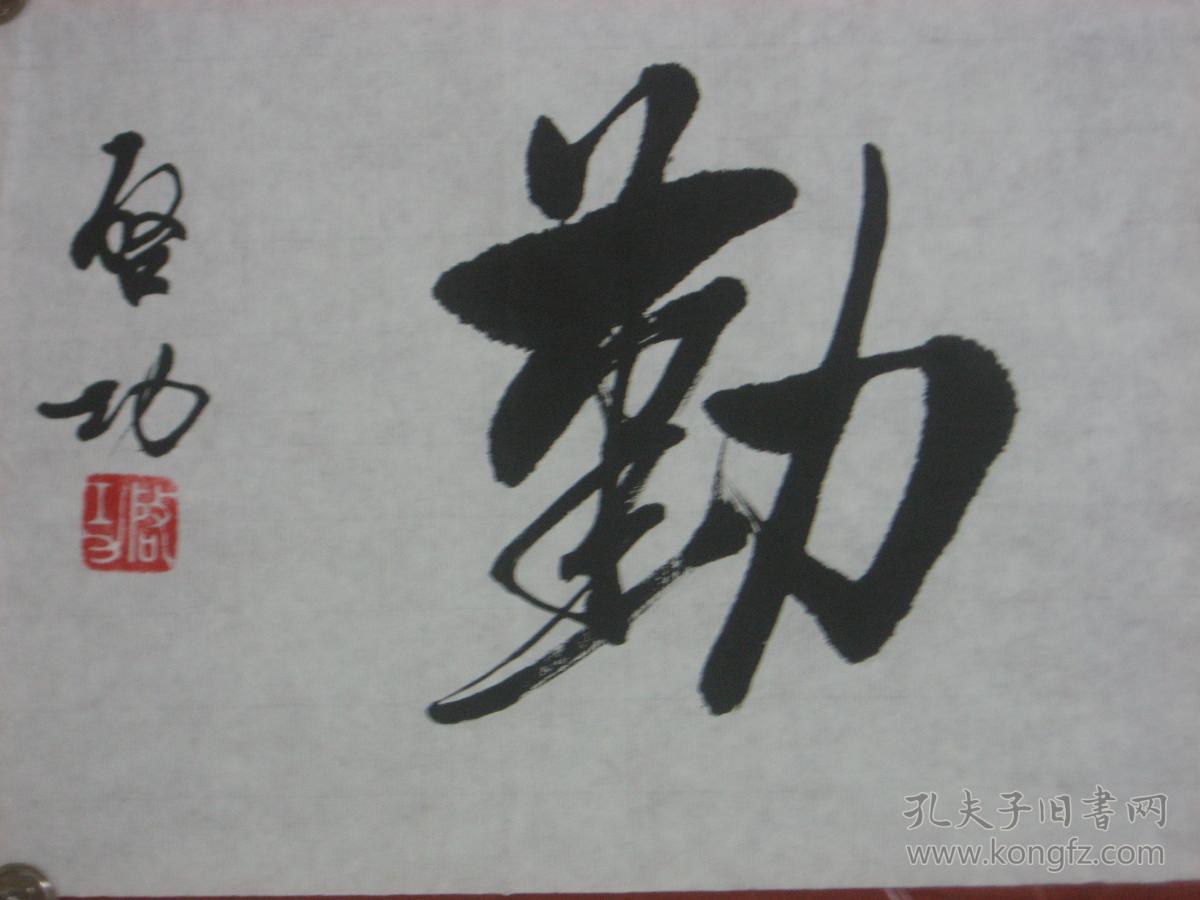 勤
启功
启功
孔夫子旧書网
www.kongfz.com